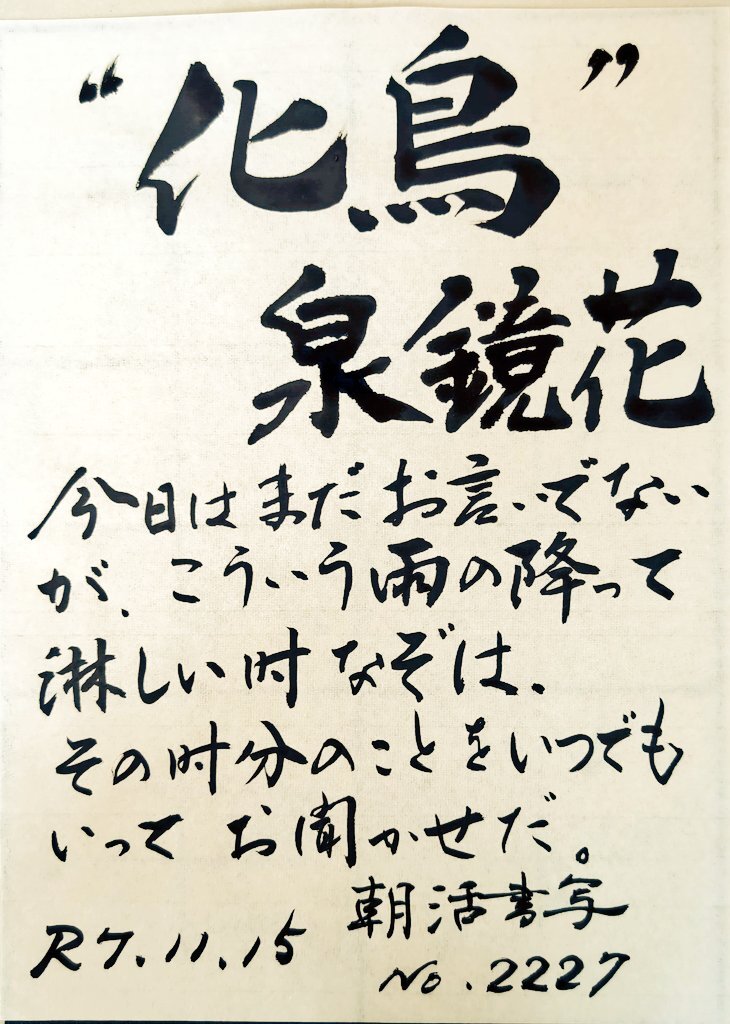 “化鳥”
泉鏡花
今日はまだお言いでない
が、こういう雨の降って
淋しい時なぞは、
その時分のことをいつでも
いってお聞かせだ。
朝活書写
R7.11.15
No.2227